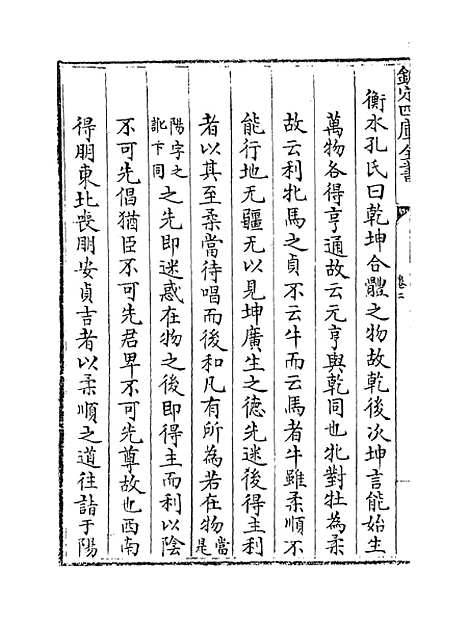 欽定四庫全書
卷二
衡水孔氏曰乾坤合體之物故乾後次坤言能始生
萬物各得亨通故云元亨與乾同也牝對牡為柔
故云利牝馬之貞不云牛而云馬者牛雖柔順不
能行地无疆无以見坤廣生之德先迷後得主利
者以其至柔當待唱而後和凡有所為若在物當是
陽字之訛卞同之先即迷惑在物之後即得主而利以陰
不可先倡猶臣不可先君卑不可先尊故也西南
得朋東北喪朋安貞吉者以柔順之道往詣于陽